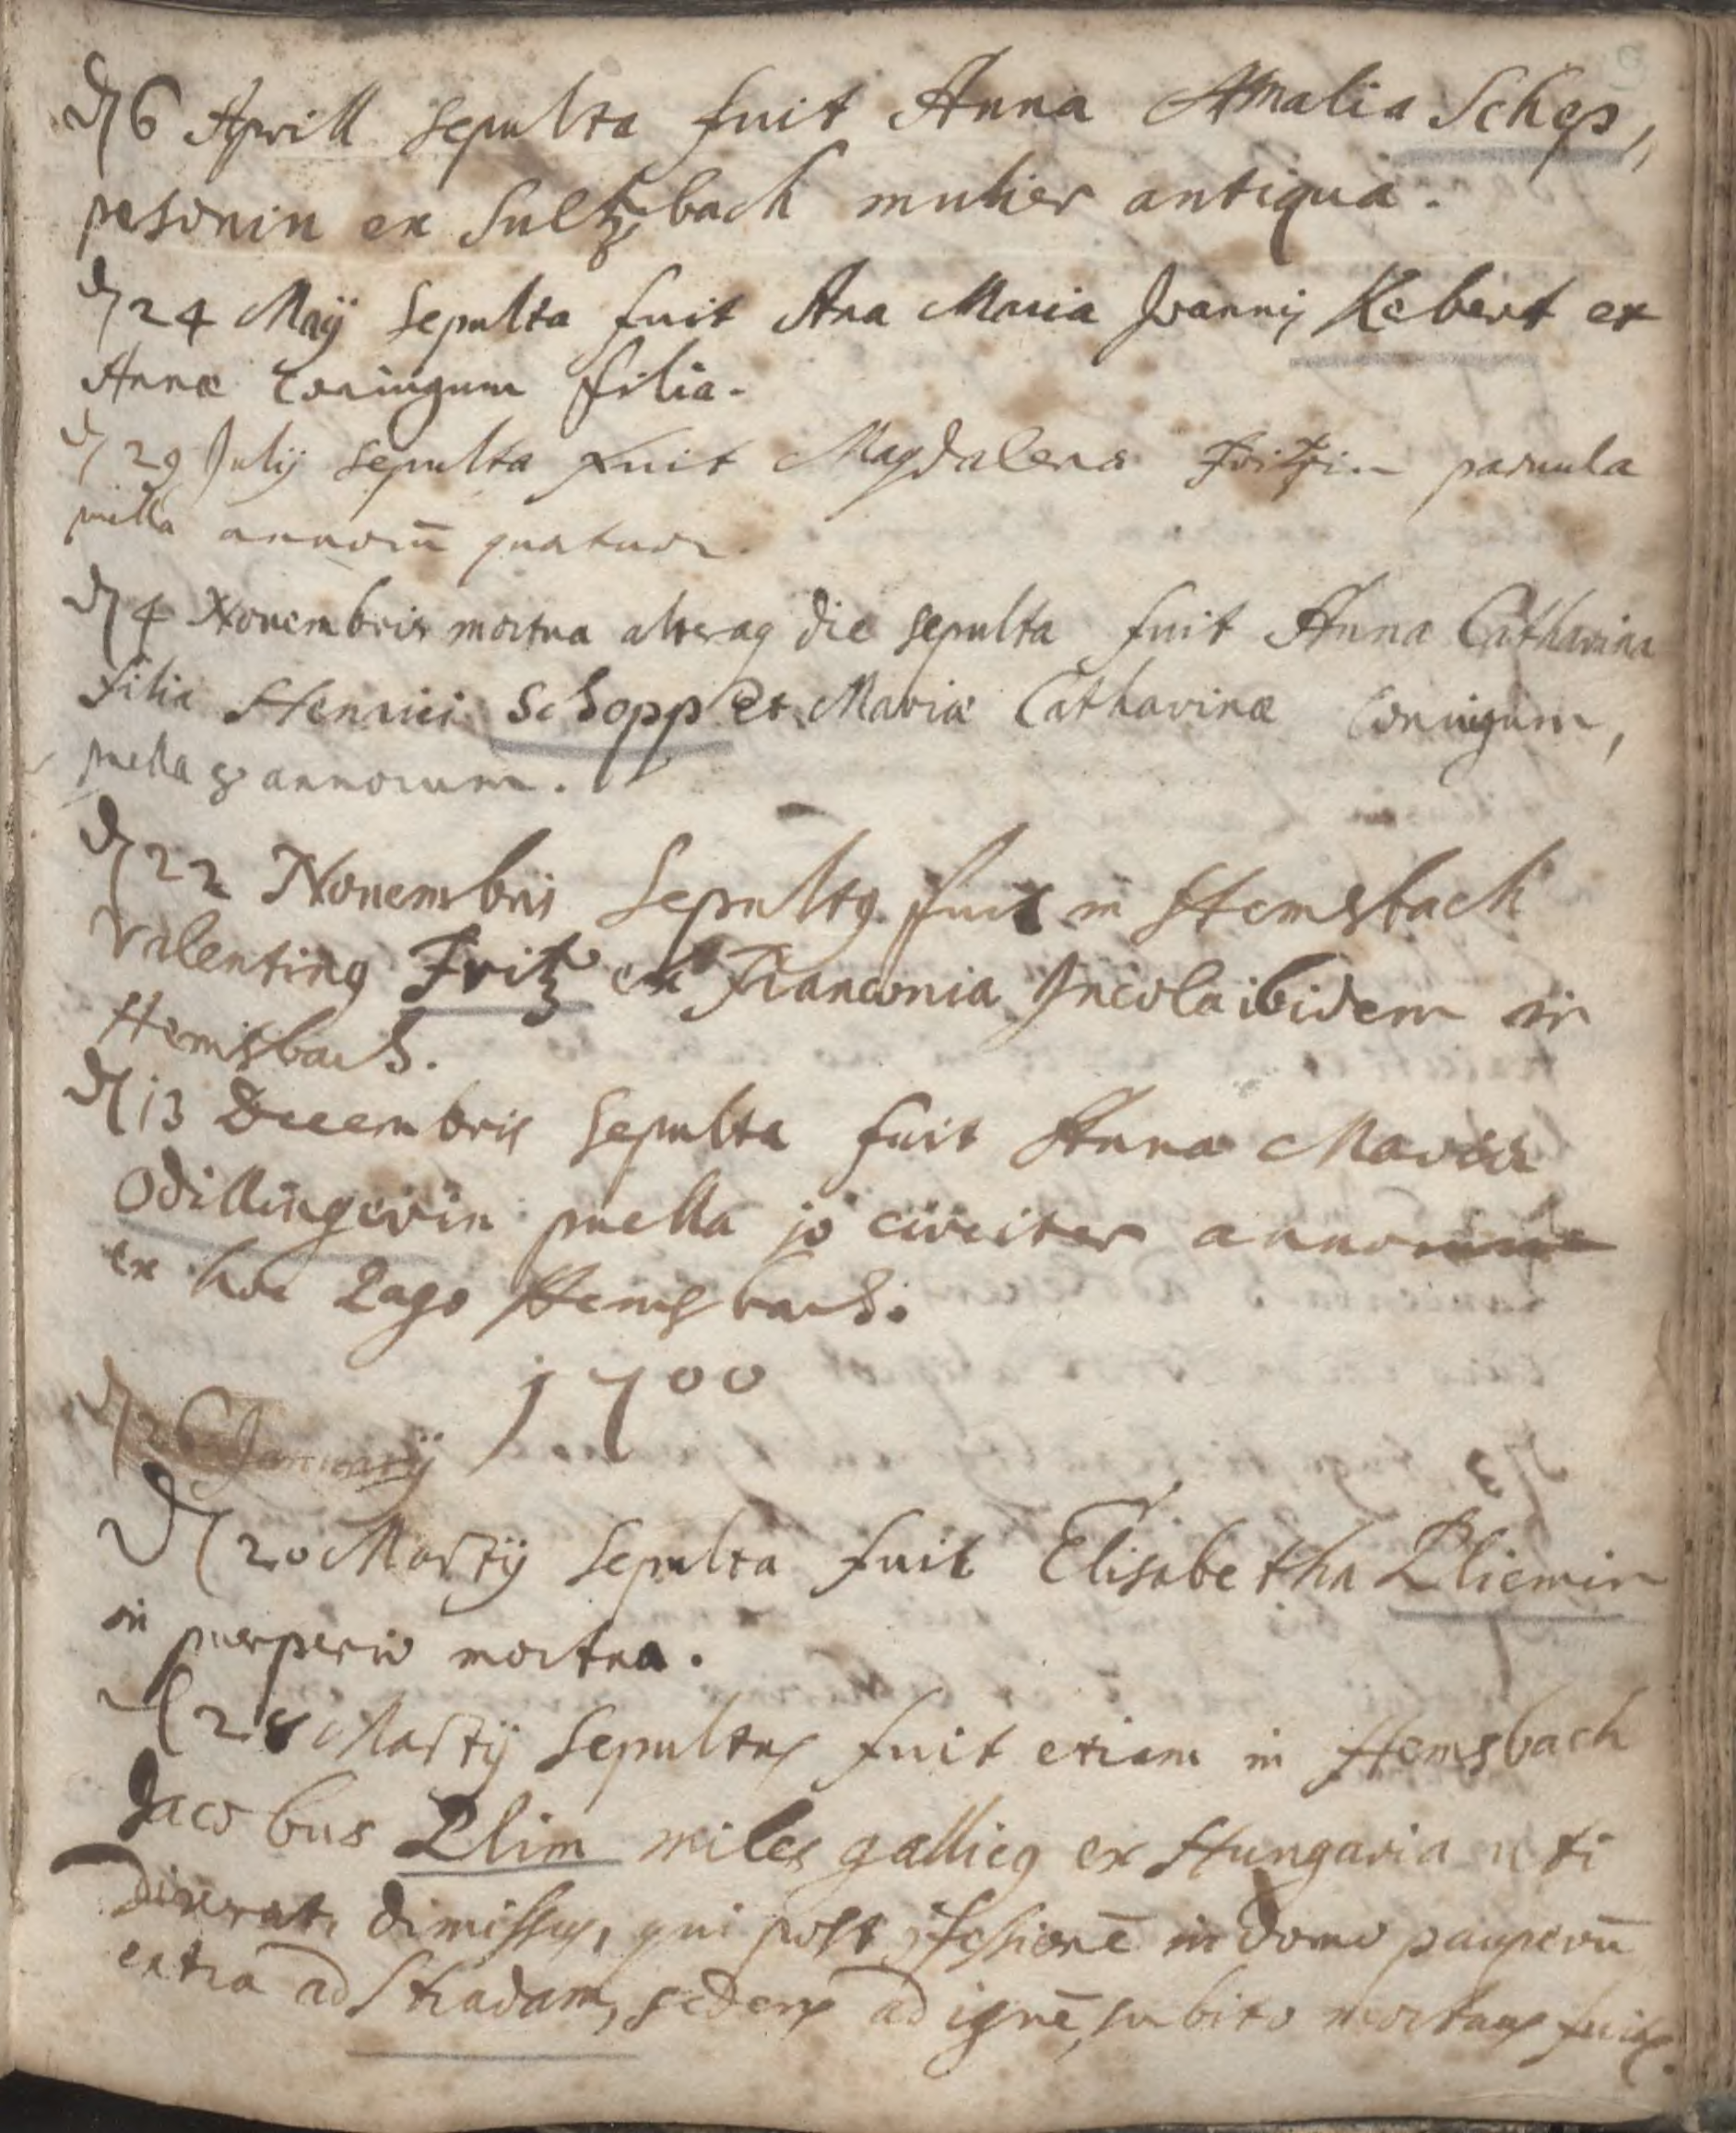 d 6 Aprill sepulta fuit Anna Amalia Schep,,
pesonin ex Sultzbach mulier antiqua.
d 24 Maÿ sepulta fuit Ana Maria Joannis Kebert et
Annæ Coniugum filia.
d 29 Julÿ sepulta fuit Magdalena Fritzin parvula
puella annorū quatuor.
d 4 Novembris mortua alteraq die sepulta fuit Anna Catharina
filia Henrici Schopp et Mariæ Catharinæ Coniugum,
puella 8 annorum.
d 22 Novembris Sepultq fuit in Hemsbach
Valentinq Fritz ex Franconia Incola ibidem in
Hemsbach.
d 13 Decembris sepulta fuit Anna Maria
Odillingerin puella jo circiter annorum
ex hoc Pago Hemsbach.
1700
d 26 Januarÿ
d 20 Martÿ sepulta fuit Elisabetha Pliemin
in puerperio mortua.
d 28 Martÿ Sepultus fuit etiam in Hemsbach
Jacobus Plim miles gallicq ex Hungaria uti
dixerat, dimissus, qui post in domo pauperū
extra ad Stradam, sedens ad ignē, subito mortuus